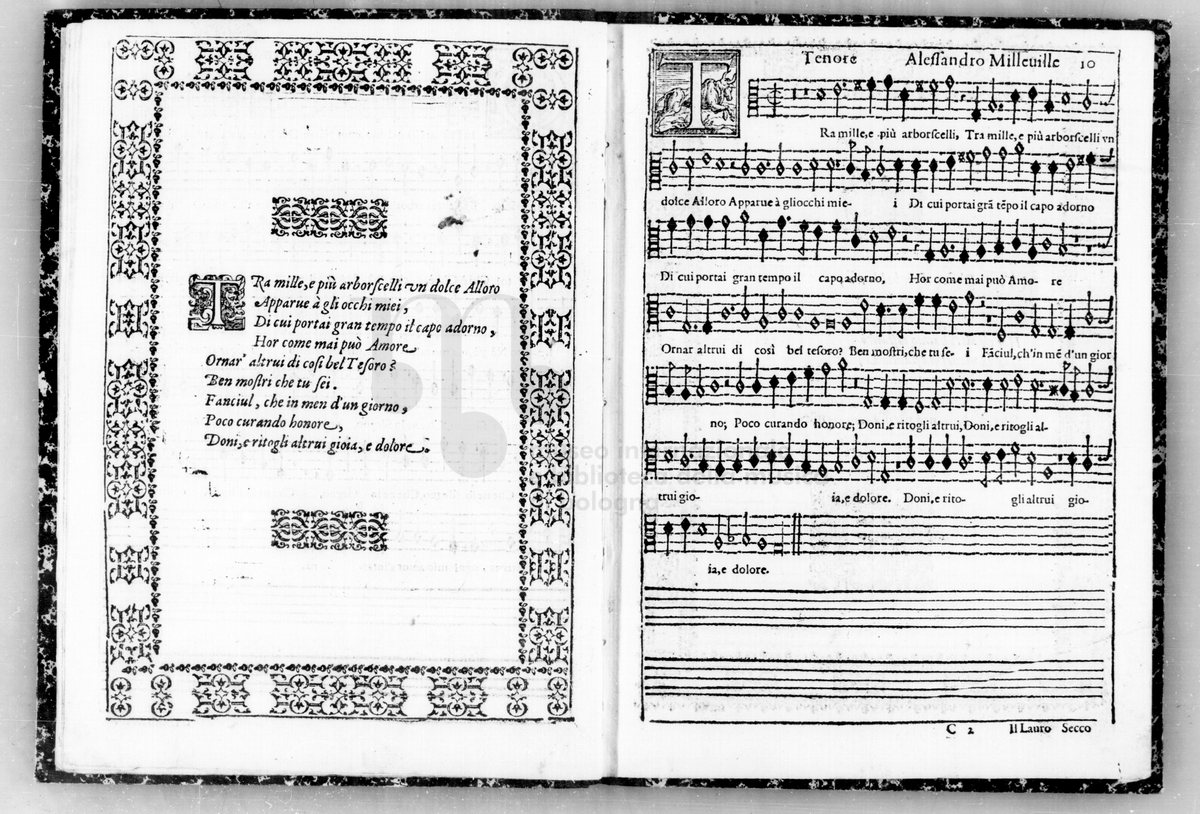 TRa mille, e più arborscelli vn dolce Alloro
Apparue à gli occhi miei,
Di cui portai gran tempo il capo adorno,
Hor come mai può Amore
Ornar' altrui di così bel Tesoro?
Ben mostri che tu sei.
Fanciul, che in men d'un giorno,
Poco curando honore,
Doni, e ritogli altrui gioia, e dolore.
Tenore Alessandro Milleuille 10
TRa mille, e più arborscelli, Tra mille, e più arborscelli vn
dolce Alloro Apparue à gliocchi mie- i Di cui portai grã tẽpo il capo adorno
Di cui portai gran tempo il capo adorno, Hor come mai può Amo- re
Ornar altrui di così bel tesoro? Ben mostri, che tu se- i Fãciul, ch'in mẽ d'un gior
no; Poco curando honore; Doni, e ritogli altrui, Doni, e ritogli al-
trui gio- ia, e dolore. Doni, e rito- gli altrui gio-
ia, e dolore.
C 2 Il Lauro Secco